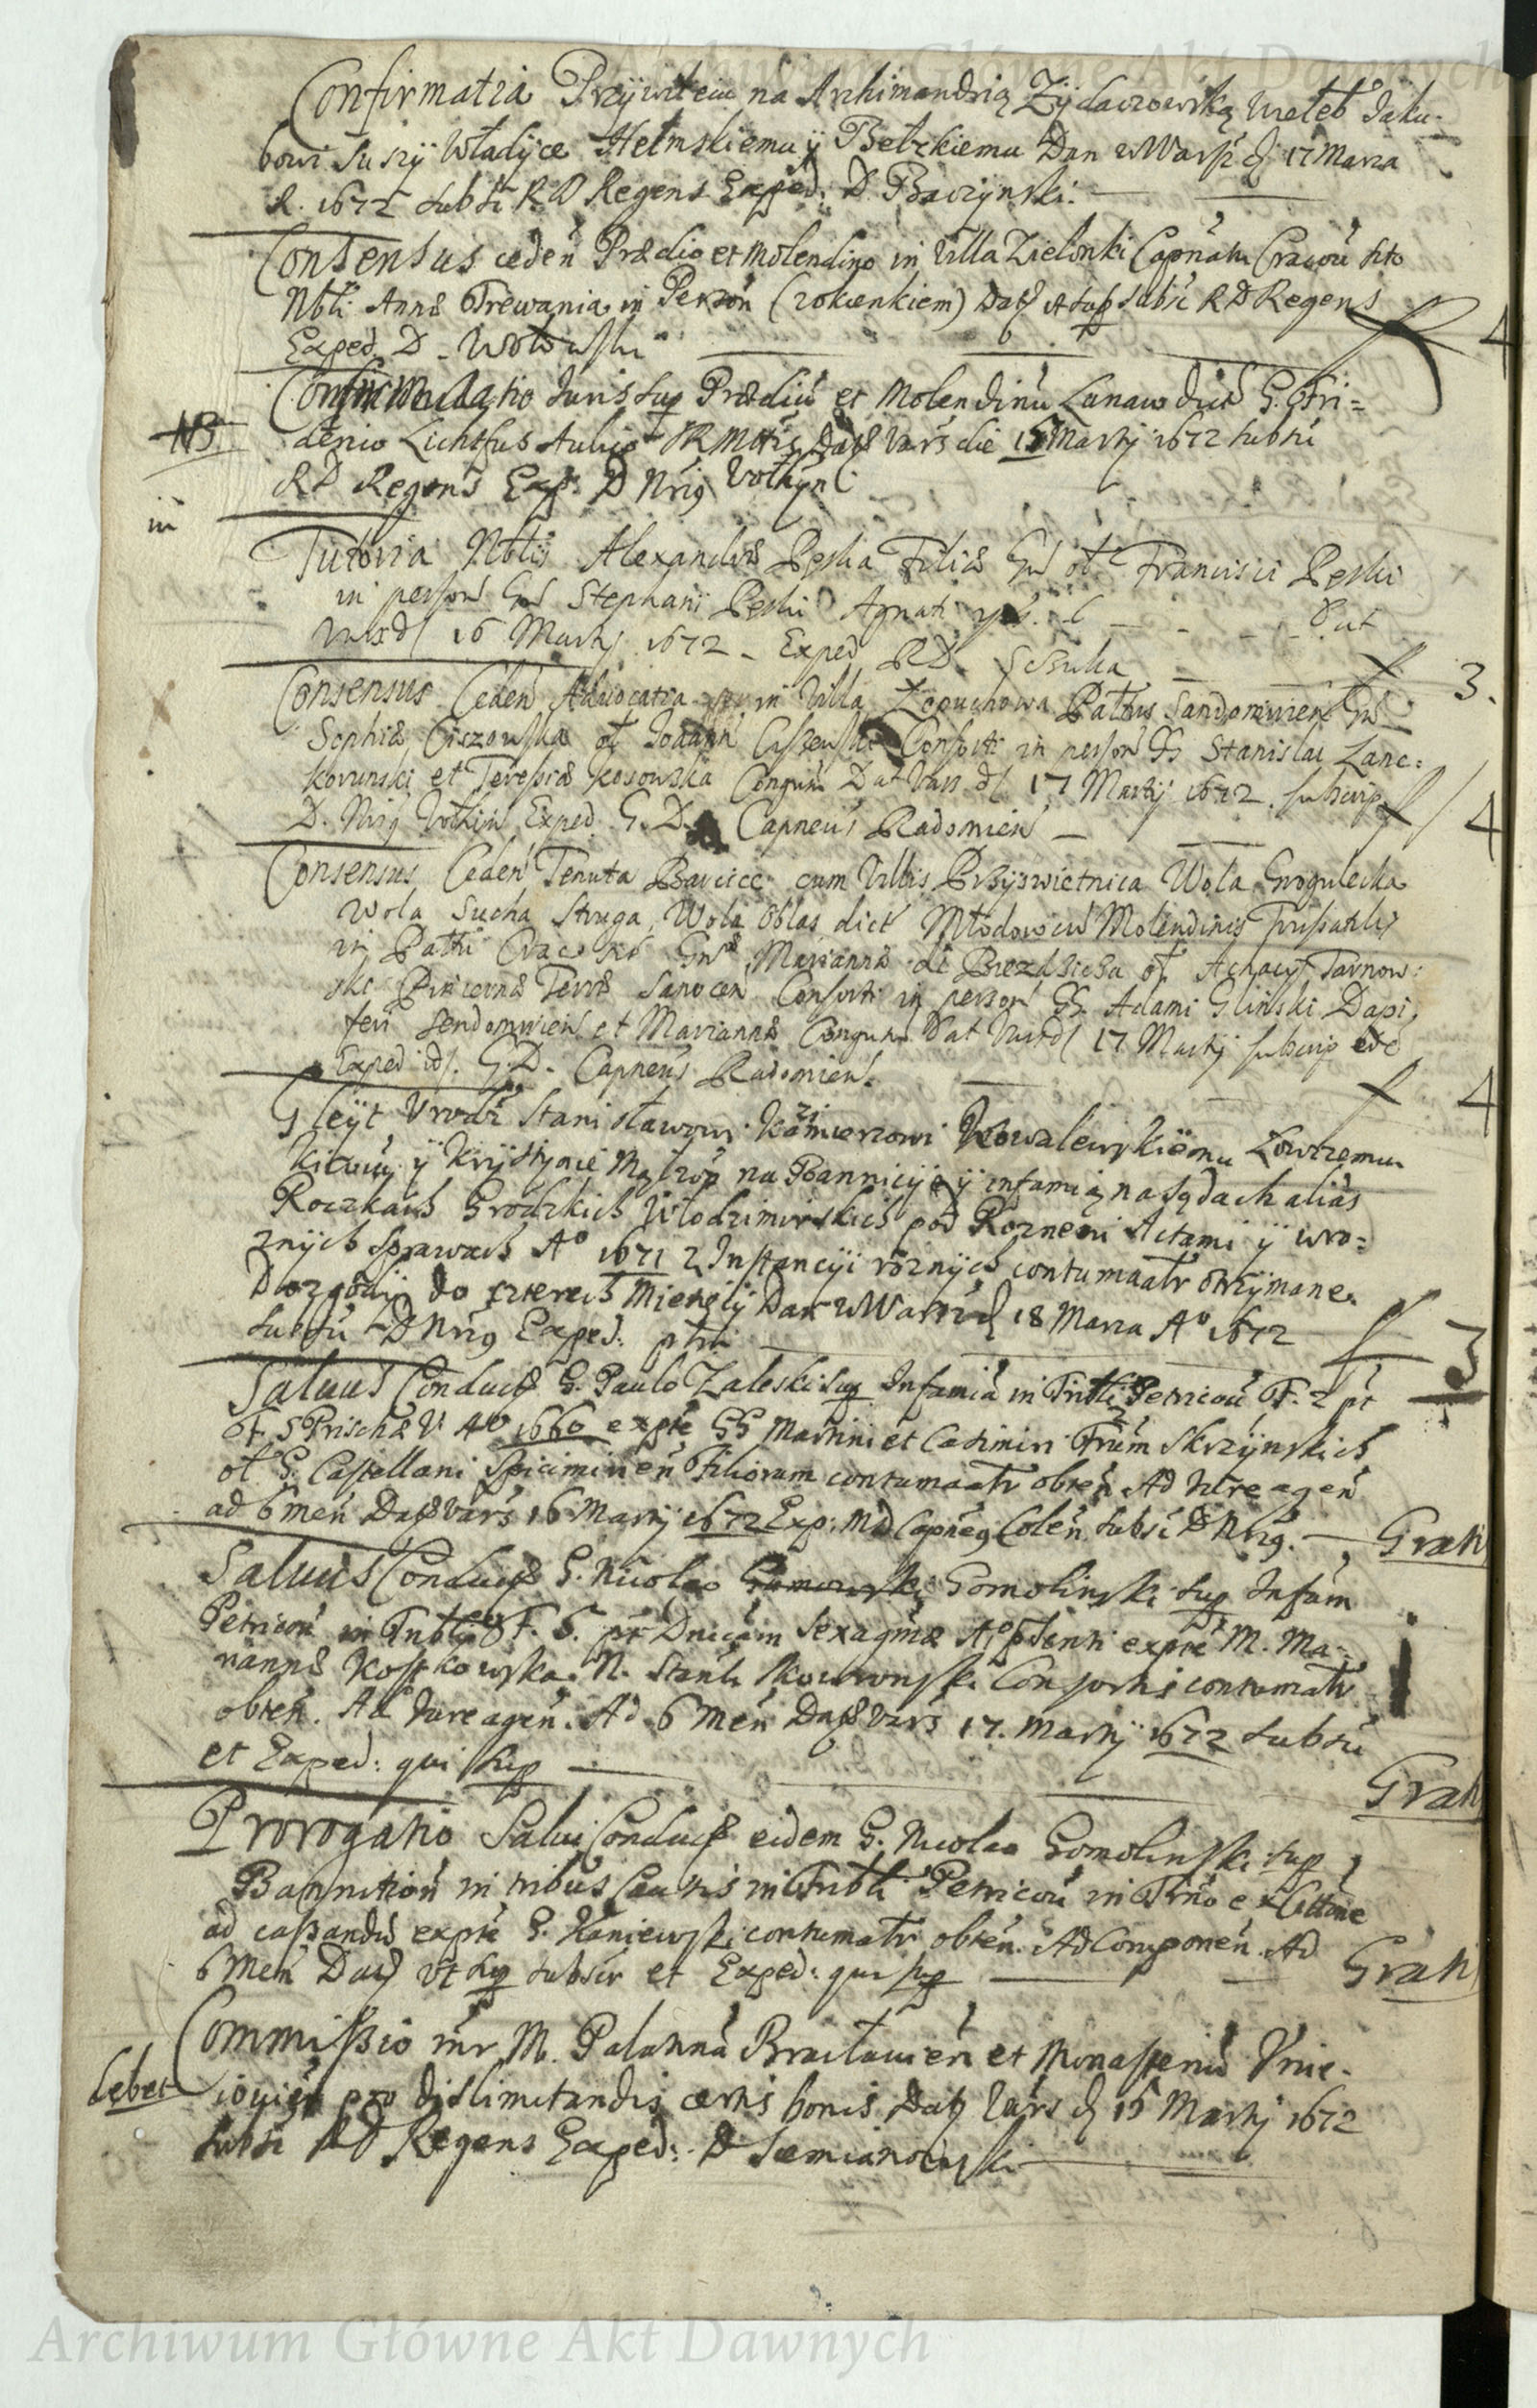 Archiwum Główne Akt Dawnych
Confirmatia Przÿwileiu na Archimandrią Zÿdaczowską Wieleb Jaku-
bowi Suszÿ Władÿce Hełmskiemu ÿ Bełzkiemu Dan w Warsz d 17 Marca
R. 1672 Subsc RD Regens Exped: D. Baczÿnski.
Consensus ceden Prædio et Molendino in Villa Zielonki Capnatu Cracou sito
Nbli Annæ in Person Dat ut sup subsc RD Regens
Exped D. Wołowski
4
Juris sup Prædiu et Molendinu Lanaw dict G. Fri=
NB
derico Aulico SRMttis Dat Vars die 15 Martij 1672 subscr
RD Regens Exp. D Nrig Vothÿn
in
Tutoria Nblis Alexandræ Peska Filiæ Gn ol Francisci Peski
in person Gn Stephani Peski Agnati Dat
Vars d 16 Martij 1672 - Exped RD. Szczuka
3.
Consensus Ceden Advocatia in Villa Łopuchowa Pattus Sandomirien Gn
Sophiæ Ciszowska ol Joann Ciszewski Consorti in person GG Stanislai Lanc=
korunski et Teressiæ Kosowska Congum Dat Vars d 17 Martij 1672. subscrip
D. Nrig Vothin Exped G. D. Capneus Radomien
4
Consensus Ceden Tenuta Barcice cum Villis Przÿswietnica Wola Krogulecka
Wola Sucha Struga, Wola Oblas dict Młodowiew Molendinis
in Pattu Cracoui Gnæ Mariannæ de Brzezdziecka ol Achacÿ Tarnow:
ski Pincernæ Terræ Sanocen Consorti in person GG. Adami Glinski Dapi
feri Sendomirien et Mariannæ Congum Dat Vars d 17 Martij subscrip
Exped id. G. D. Capneus Radomien.
4
Gleÿt Urodz Stanisławowi Kazimierzowi Kowalewskiemu Łowczemu
Kiiowu ÿ Krÿstÿnie Małżon na Bannicÿe ÿ infamią na Sądach alias
Roczkach Grodzkich Włodzimirskich pod Roznemi Actami ÿ w ro=
znÿch Sprawach A° 1671 z Instancÿi roznÿch contumaatr otrzÿmane.
Do zgodÿ do czterech Miesięcÿ Dan w Warsz d 18 Marca A° 1672
Subscr D Nrig Exped:
3
Saluus Conduct G. Paulo Zaleski sup Infamia in Tribli Petricou F. 2 pt
F. S Priscæ V. A° 1660 expte GG Martini et Casimiri Frum Skrzÿnskich
ol G. Castellani Spicimirien Filiorum contumaatr obten Ad Jure agen
ad 6 men Dat Vars 16 Martij 1672 Exp: Md Capneg Colen subsc D Nrig.
Grat
Saluus Conduct G. Nicolao Gomolinski sup Infam
Petricou in Tribli F. 5. pt Dnicam Sexagmæ A° psenti expte M. Ma-
riannæ Kosskowska N. Stanli Skowronski Consortis contumatr
obten. Ad Jure agen. Ad 6 Men Dat Vars 17. Martij 1672 subscr
et Exped: qui sup
Grat
Prorogatio Salui Conduct eidem G. Nicolao Gomolinski sup
Bannition in tribus Causis in Tribli Petricou in Trno ex Cittne
ad cassandu expte G. Haniewski contumatr obten. Ad Componen. Ad
6 Men Dat Vt sup subscr et Exped: qui sup
Grat
Commissio intr M. Palatina Bracłauien et Monasteriu Vnie-
debet
iouien pro dislimitandis certis bonis Dat Vars d 15 Martij 1672
Subsc RD Regens Exped: D Siemianowski
Archiwum Główne Akt Dawnych